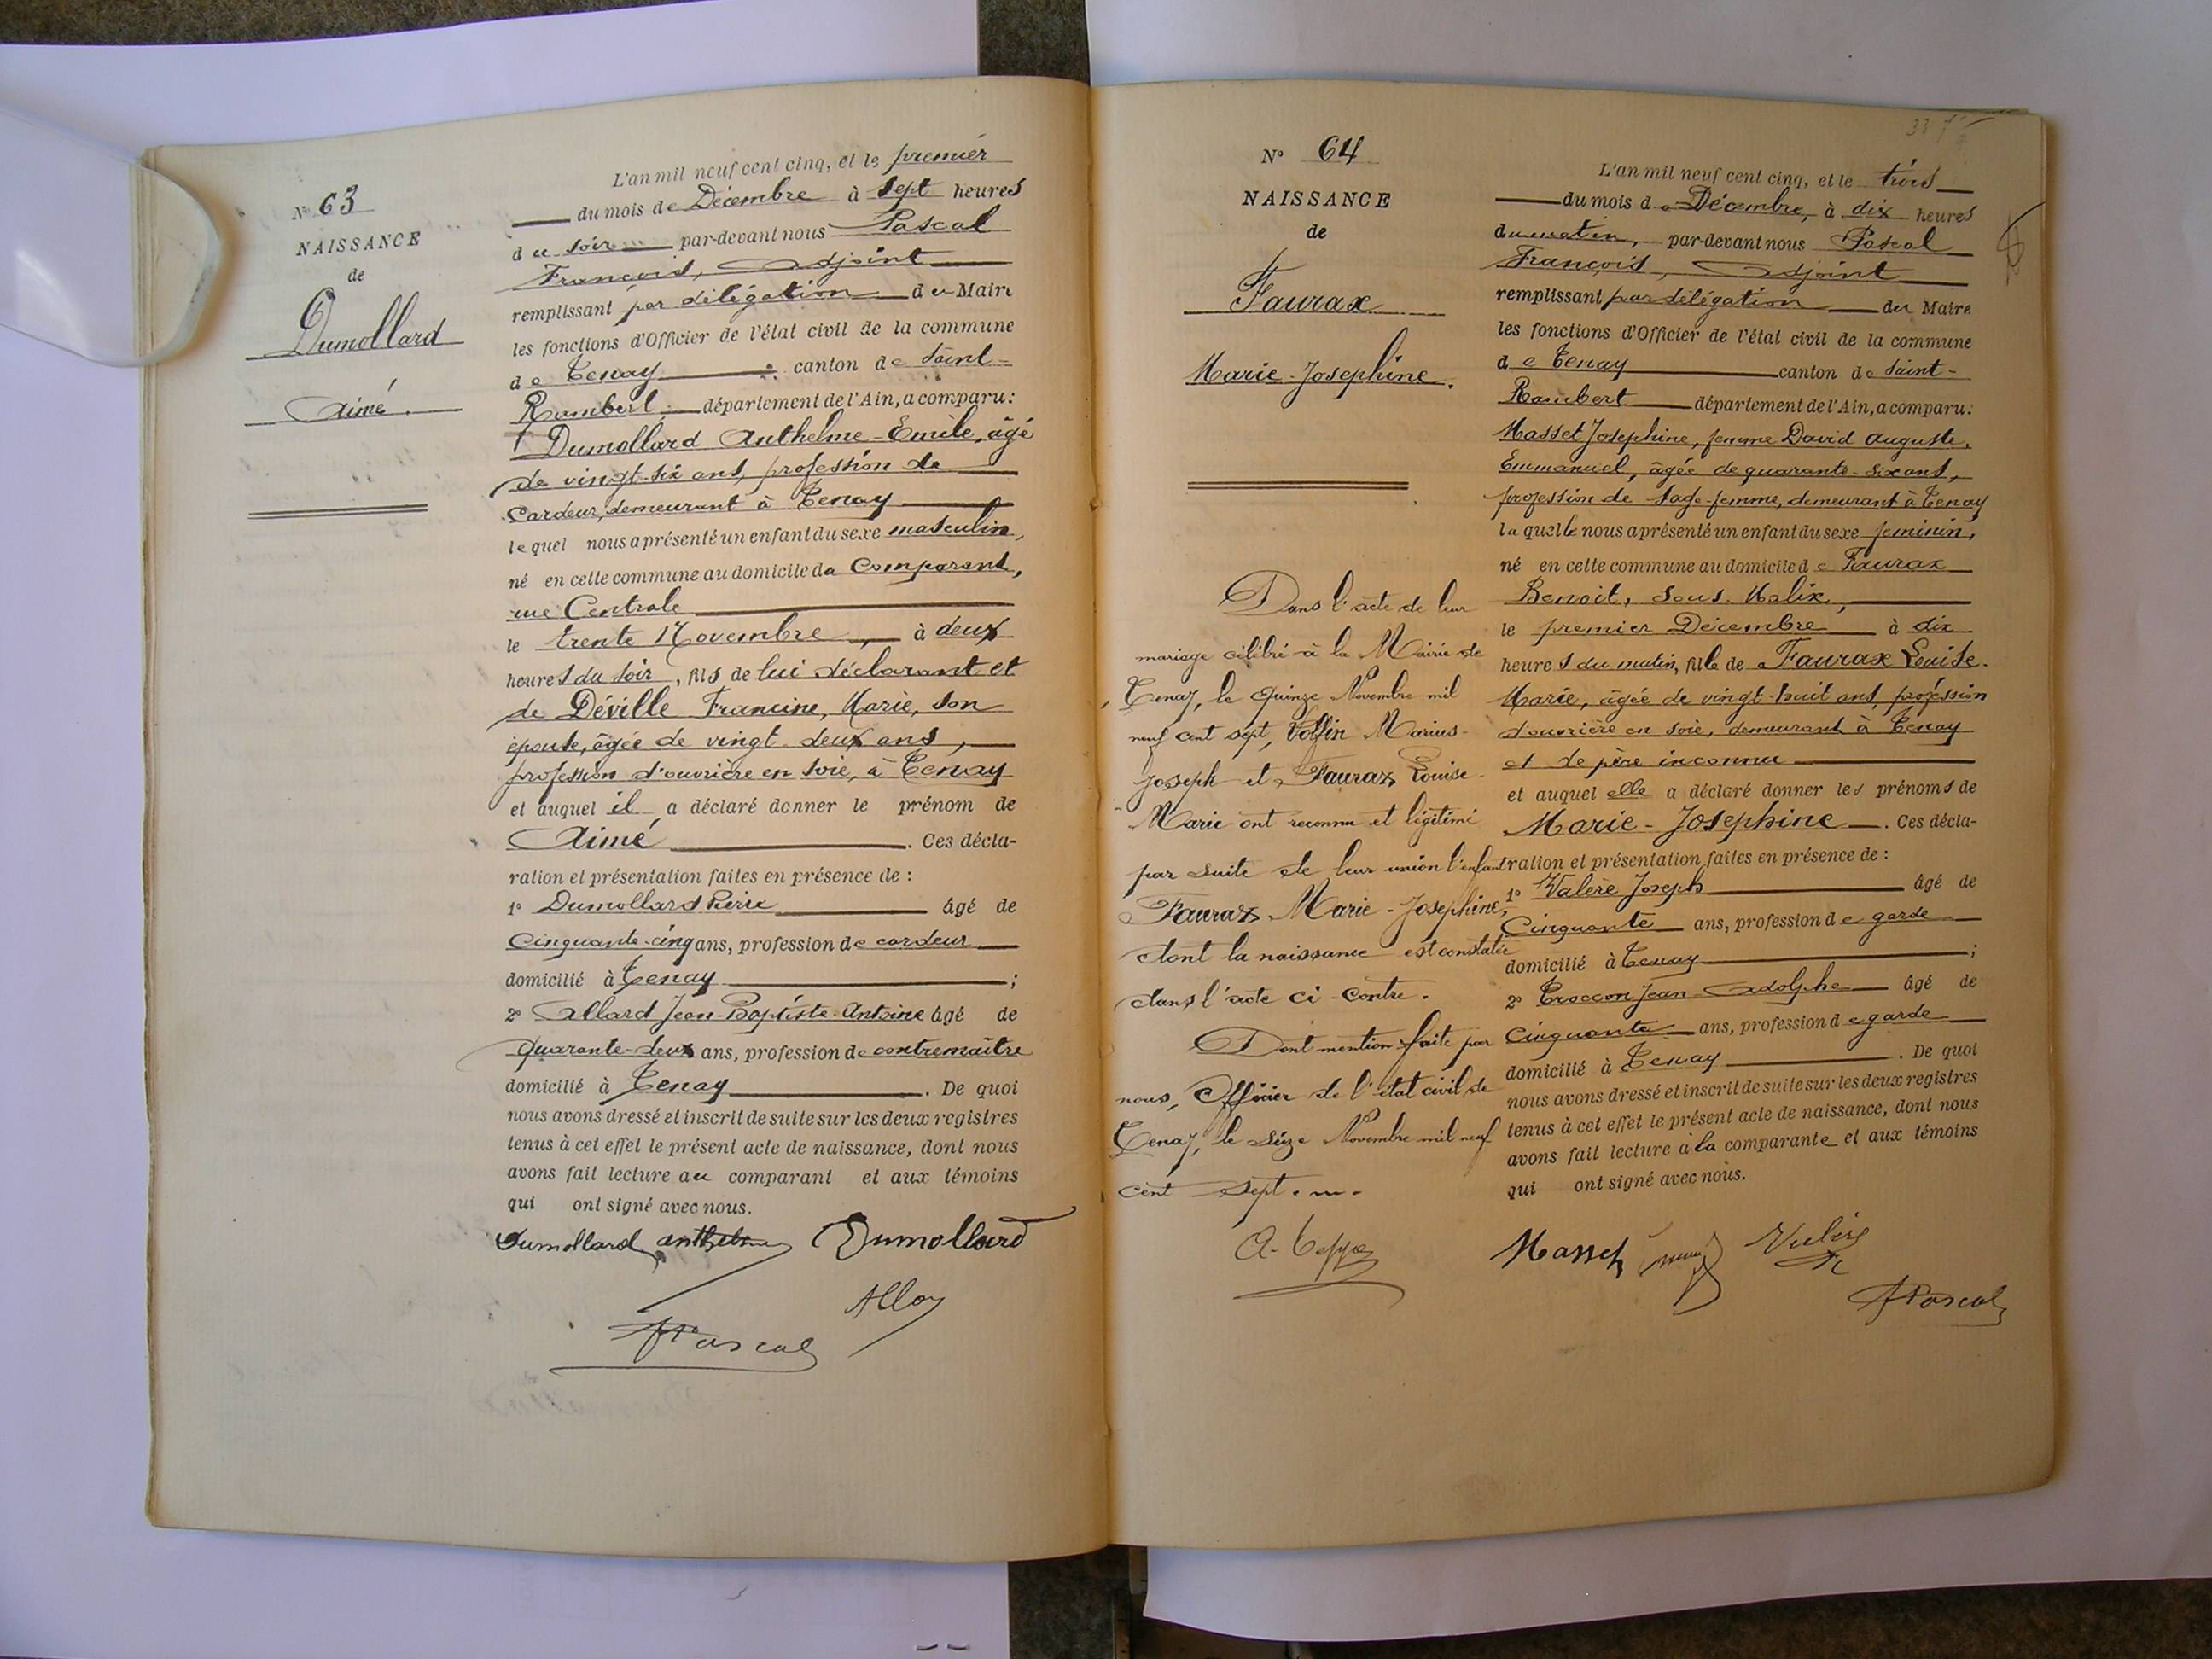 N° 63
NAISSANCE
de
Dumollard
Aimé.
L'an mil neuf cent cinq, et le premier
du mois de Décembre à sept heures
du soir par-devant nous Pascal
François, Adjoint
remplissant par délégation du Maire
les fonctions d'Officier de l'état civil de la commune
de Tenay canton de Saint-
Rambert département de l'Ain, a comparu:
Dumollard Anthelme-Emile, âgé
de vingt-six ans, profession de
Cardeur, demeurant à Tenay
lequel nous a présenté un enfant du sexe masculin,
né en cette commune au domicile du Comparant,
rue Centrale
le trente Novembre, à deux
heures du soir, fils de lui déclarant et
de Déville Francine, Marie, son
épouse, âgée de vingt-deux ans,
profession d'ouvrière en soie, à Tenay
et auquel il a déclaré donner le prénom de
Aimé. Ces décla-
ration et présentation faites en présence de:
1° Dumollard Pierre âgé de
Cinquante-cinq ans, profession de cardeur
domicilié à Tenay;
2° Allard Jean-Baptiste-Antoine âgé de
Quarante-deux ans, profession de contremaître
domicilié à Tenay. De quoi
nous avons dressé et inscrit de suite sur les deux registres
tenus à cet effet le présent acte de naissance, dont nous
avons fait lecture au comparant et aux témoins
qui ont signé avec nous.
Dumollard anthelme Dumollard
Pascal
N° 64
NAISSANCE
de
Faurax
Marie-Josephine.
Dans l'acte de leur
mariage célébré à la Mairie de
Tenay, le quinze Novembre mil
neuf cent sept, Marius-
Joseph et Faurax Louise-
Marie ont reconnu et légitimé
par suite de leur union l'enfant
Faurax Marie-Josephine,
dont la naissance est constatée
dans l'acte ci-contre.
Dont mention faite par
nous, Officier de l'état civil de
Tenay, le seize Novembre mil neuf
cent sept.
33
L'an mil neuf cent cinq, et le trois
du mois de Décembre, à dix heures
du matin, par-devant nous Pascal
François, Adjoint
remplissant par délégation du Maire
les fonctions d'Officier de l'état civil de la commune
de Tenay canton de Saint-
Rambert département de l'Ain, a comparu:
Masset Josephine, femme David Auguste,
Emmanuel, âgée de quarante-six ans,
profession de sage-femme, demeurant à Tenay
laquelle nous a présenté un enfant du sexe féminin,
né en cette commune au domicile de Faurax
Benoit, sous-Malix,
le premier Décembre à dix
heures du matin, fille de Faurax Louise-
Marie, âgée de vingt-huit ans, profession
d'ouvrière en soie, demeurant à Tenay
et de père inconnu
et auquel elle a déclaré donner les prénoms de
Marie-Josephine. Ces décla-
ration et présentation faites en présence de:
1° Valère Joseph âgé de
Cinquante ans, profession de garde
domicilié à Tenay;
2° Troccon Jean-Adolphe âgé de
Cinquante ans, profession de garde
domicilié à Tenay. De quoi
nous avons dressé et inscrit de suite sur les deux registres
tenus à cet effet le présent acte de naissance, dont nous
avons fait lecture à la comparante et aux témoins
qui ont signé avec nous.
Masset
Pascal